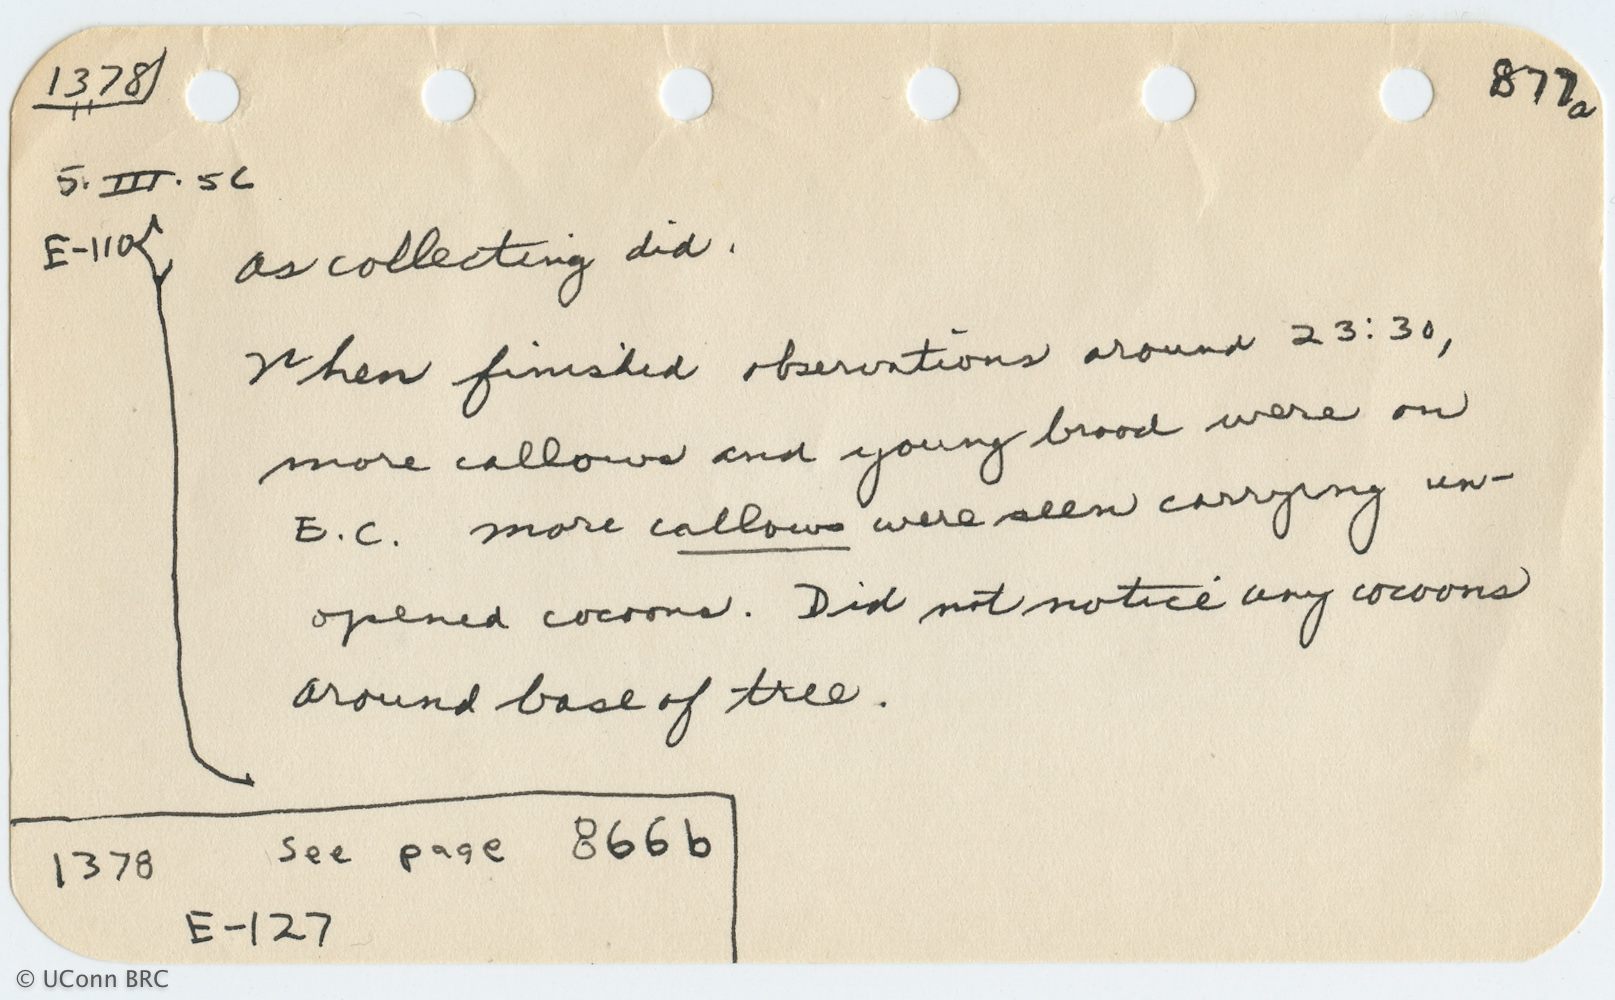 1378
877a
5. III. 56
E-110
as collecting did.
When finished observations around 23:30,
more callows and young brood were on
E.C. more callows were seen carrying un-
opened cocoons. Did not notice any cocoons
around base of tree.
1378 See page 866b
E-127
© UConn BRC